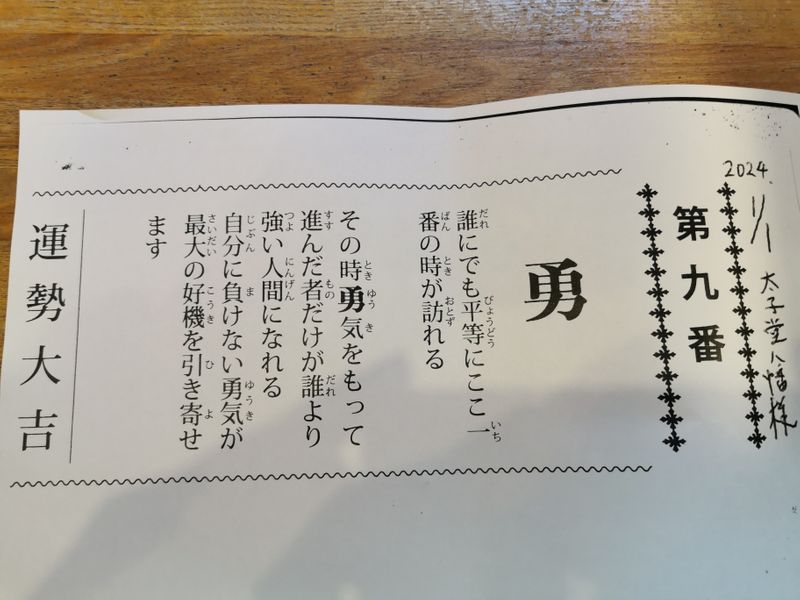 2024. 1/1 太子堂八幡様
第九番
勇
誰にでも平等にここ一
番の時が訪れる
その時勇気をもって
進んだ者だけが誰より
強い人間になれる
自分に負けない勇気が
最大の好機を引き寄せ
ます
運勢大吉